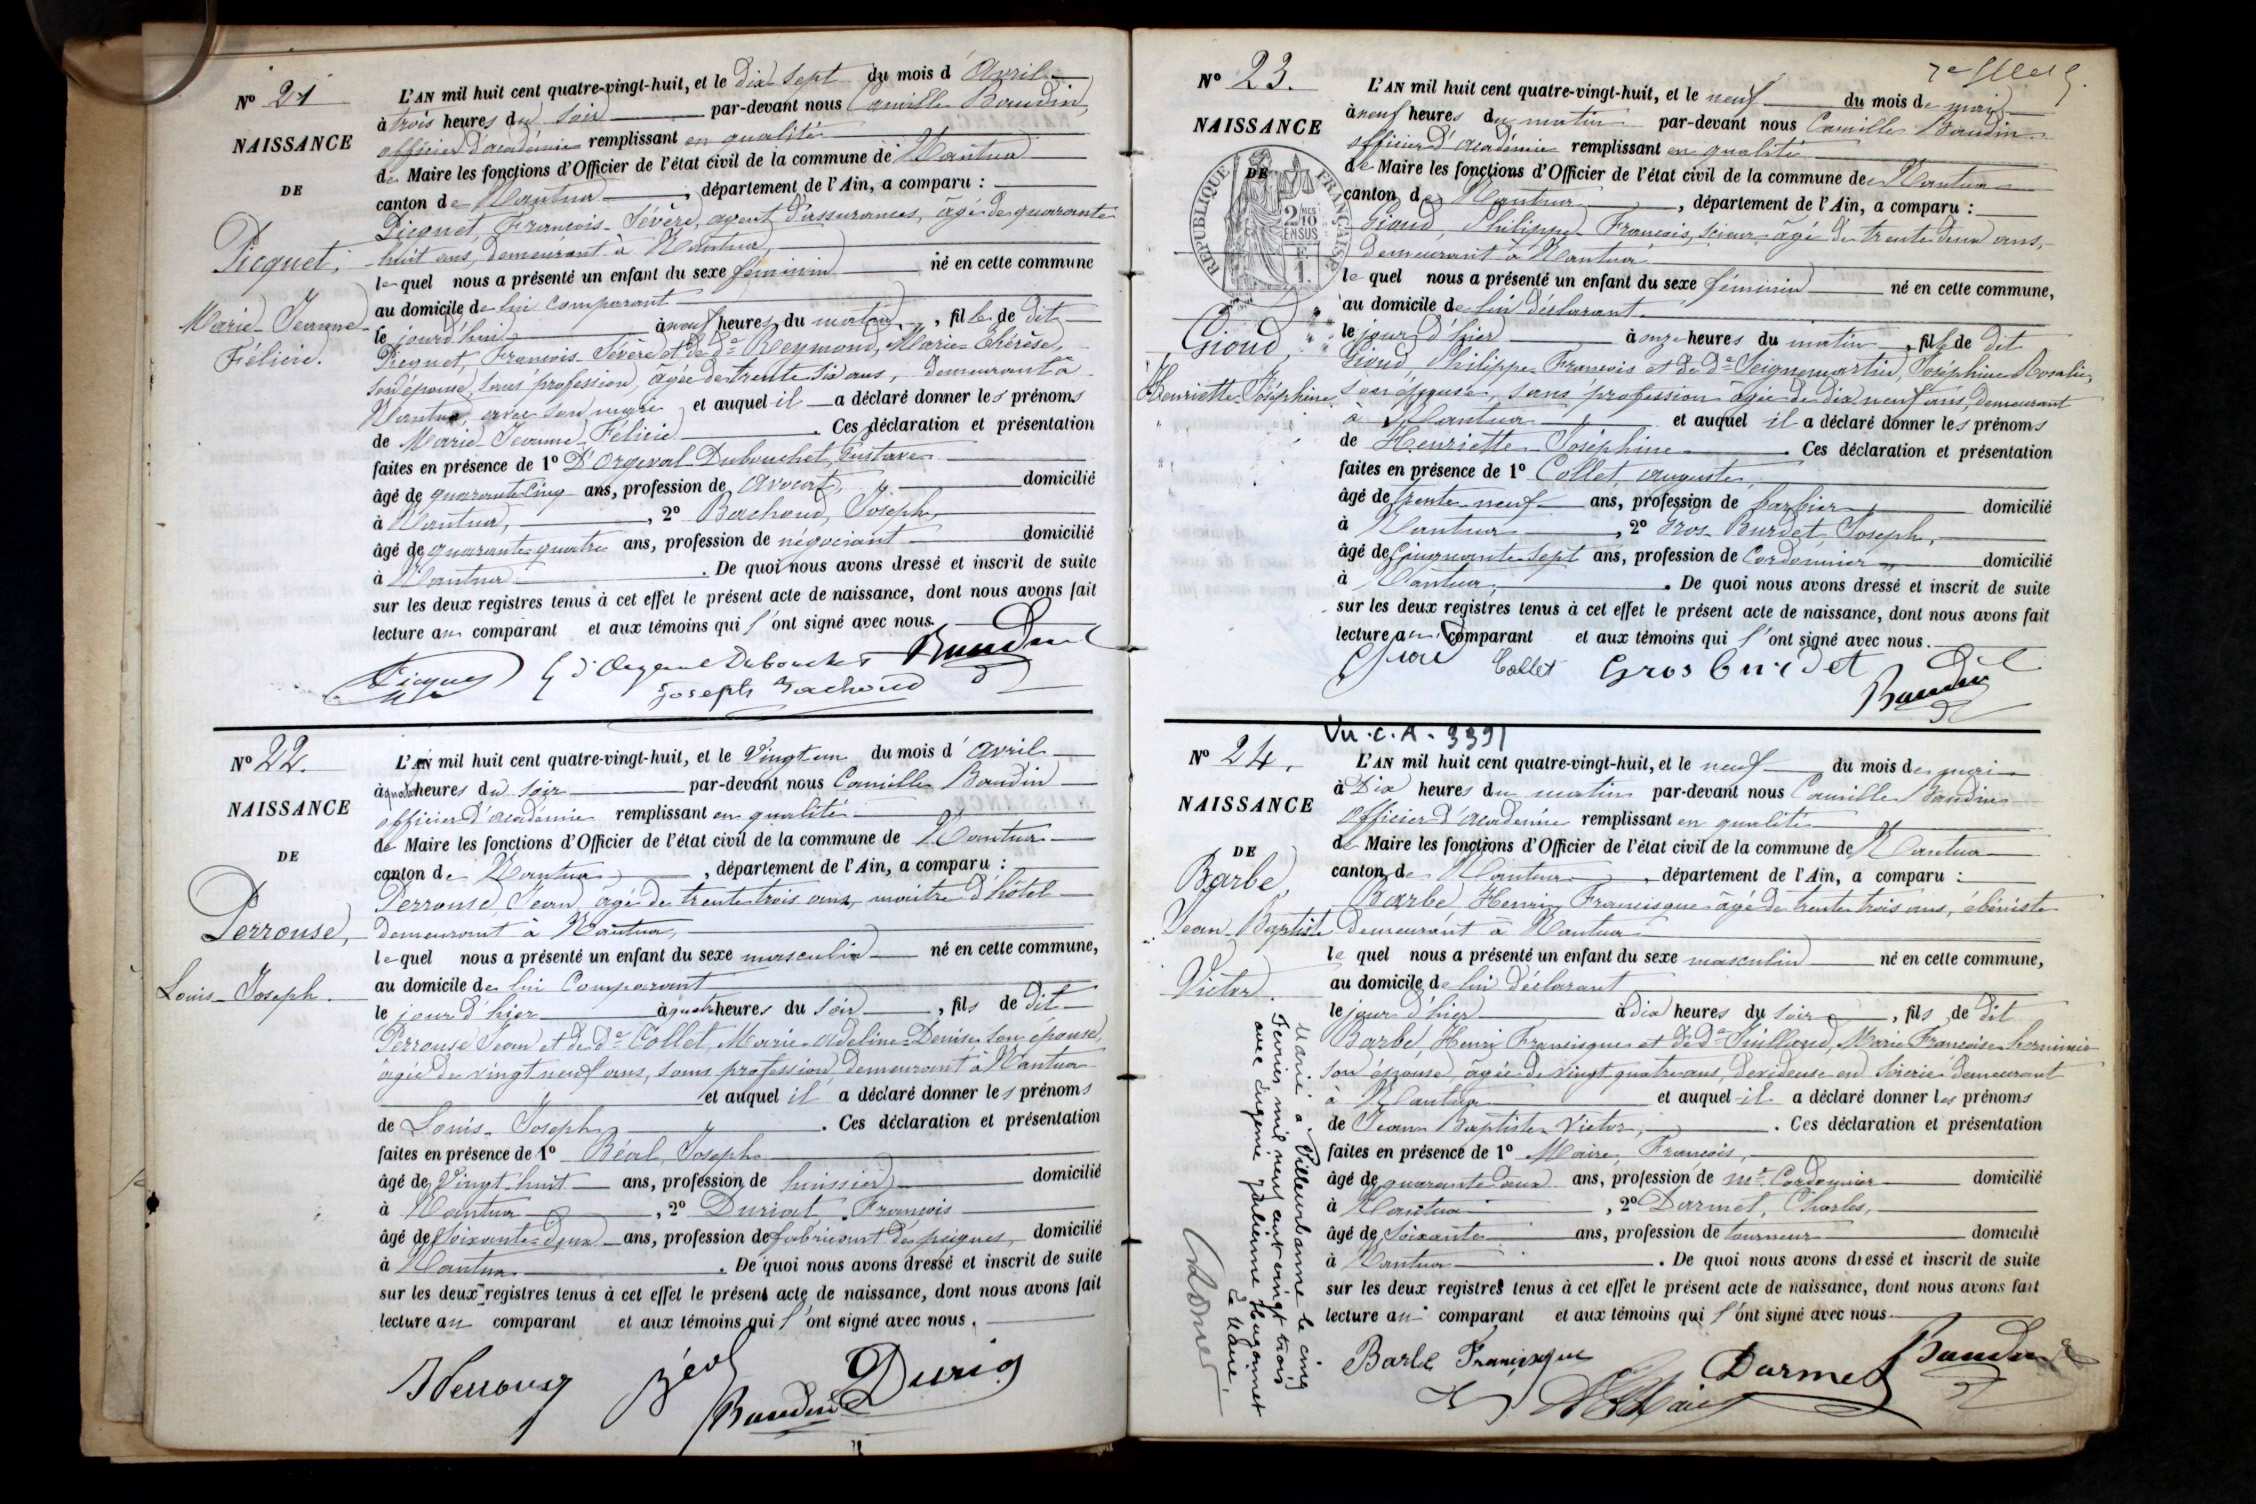 Nº 21
NAISSANCE
DE
Picquet,
Marie-Jeanne-
Félicie.
L'AN mil huit cent quatre-vingt-huit, et le dix sept du mois d'Avril
à trois heures du soir par-devant nous Camille Baudin,
officier d'académie remplissant en qualité
de Maire les fonctions d'Officier de l'état civil de la commune de Nantua
canton de Nantua, département de l'Ain, a comparu :
Picquet, François-Sévère, agent d'assurances, âgé de quarante
huit ans, demeurant à Nantua,
lequel nous a présenté un enfant du sexe féminin né en cette commune
au domicile de lui comparant
le jourd'hui à neuf heures du matin, fille de dit
Picquet, François-Sévère et de De Reymond, Marie-Thérèse,
son épouse, sans profession, âgée de trente six ans, demeurant à
Nantua avec son mari, et auquel il a déclaré donner les prénoms
de Marie-Jeanne-Félicie. Ces déclaration et présentation
faites en présence de 1º D'Orgeval-Dubouchet, Gustave
âgé de quarante cinq ans, profession de avocat, domicilié
à Nantua, 2º Bachoud, Joseph,
âgé de quarante quatre ans, profession de négociant domicilié
à Nantua. De quoi nous avons dressé et inscrit de suite
sur les deux registres tenus à cet effet le présent acte de naissance, dont nous avons fait
lecture au comparant et aux témoins qui l'ont signé avec nous.
Picquet G d'Orgeval Dubouchet Baudin
Joseph Bachoud
Nº 22.
NAISSANCE
DE
Perrouse,
Louis-Joseph.
L'AN mil huit cent quatre-vingt-huit, et le Vingt un du mois d'avril
à quatre heures du soir par-devant nous Camille Baudin
officier d'académie remplissant en qualité
de Maire les fonctions d'Officier de l'état civil de la commune de Nantua
canton de Nantua, département de l'Ain, a comparu :
Perrouse, Jean, âgé de trente trois ans, maître d'hôtel
demeurant à Nantua,
lequel nous a présenté un enfant du sexe masculin né en cette commune,
au domicile de lui Comparant
le jour d'hier à quatre heures du soir, fils de dit
Perrouse Jean et de De Collet, Marie-Adeline-Denise son épouse,
âgée de vingt neuf ans, sans profession, demeurant à Nantua
et auquel il a déclaré donner les prénoms
de Louis-Joseph. Ces déclaration et présentation
faites en présence de 1º Béal, Joseph
âgé de Vingt-huit ans, profession de huissier domicilié
à Nantua, 2º Duriat, François
âgé de soixante-deux ans, profession de fabricant de peignes, domicilié
à Nantua. De quoi nous avons dressé et inscrit de suite
sur les deux registres tenus à cet effet le présent acte de naissance, dont nous avons fait
lecture au comparant et aux témoins qui l'ont signé avec nous.
Perrouse Béal Duriat
Baudin
Nº 23.
NAISSANCE
DE
RÉPUBLIQUE FRANÇAISE
2/10MES
EN SUS
Gioud,
Henriette Joséphine
L'AN mil huit cent quatre-vingt-huit, et le neuf du mois de mai
à neuf heures du matin par-devant nous Camille Baudin
officier d'académie remplissant en qualité
de Maire les fonctions d'Officier de l'état civil de la commune de Nantua
canton de Nantua, département de l'Ain, a comparu :
Gioud, Philippe François, scieur, âgé de trente deux ans,
demeurant à Nantua
lequel nous a présenté un enfant du sexe féminin né en cette commune,
au domicile de lui déclarant
le jour d'hier à onze heures du matin, fille de dit
Gioud, Philippe François et de De Seignemartin, Joséphine Rosalie,
son épouse, sans profession âgée de dix neuf ans, demeurant
à Nantua et auquel il a déclaré donner les prénoms
de Henriette-Joséphine. Ces déclaration et présentation
faites en présence de 1º Collet, Auguste,
âgé de trente-neuf ans, profession de barbier domicilié
à Nantua, 2º Gros-Burdet, Joseph,
âgé de Cinquante sept ans, profession de Cordonnier domicilié
à Nantua. De quoi nous avons dressé et inscrit de suite
sur les deux registres tenus à cet effet le présent acte de naissance, dont nous avons fait
lecture au comparant et aux témoins qui l'ont signé avec nous.
Gioud Collet Gros Burdet
Baudin
Vu.C.A. 3391
Nº 24.
NAISSANCE
DE
Barbe,
Jean Baptiste
Victor.
L'AN mil huit cent quatre-vingt-huit, et le neuf du mois de mai
à Dix heures du matin par-devant nous Camille Baudin
officier d'académie remplissant en qualité
de Maire les fonctions d'Officier de l'état civil de la commune de Nantua
canton de Nantua, département de l'Ain, a comparu :
Barbe, Henri Francisque âgé de trente trois ans, ébéniste
demeurant à Nantua
lequel nous a présenté un enfant du sexe masculin né en cette commune,
au domicile de lui déclarant
le jour d'hier à dix heures du soir, fils de dit
Barbe, Henri Francisque et de De Juilland, Marie Françoise herminie
son épouse, âgée de vingt quatre ans, dévideuse en soierie demeurant
à Nantua et auquel il a déclaré donner les prénoms
de Jean Baptiste Victor,. Ces déclaration et présentation
faites en présence de 1º Maire, François,
âgé de quarante deux ans, profession de Md Cordonnier domicilié
à Nantua, 2º Darmet, Charles,
âgé de soixante ans, profession de tourneur domicilié
à Nantua. De quoi nous avons dressé et inscrit de suite
sur les deux registres tenus à cet effet le présent acte de naissance, dont nous avons fait
lecture au comparant et aux témoins qui l'ont signé avec nous.
Barbe Francisque Darmet Baudin
Maire
Marié à Villeurbanne le cinq
Février mil neuf cent vingt trois
avec Eugénie Julienne Hugonnet
Le Maire,